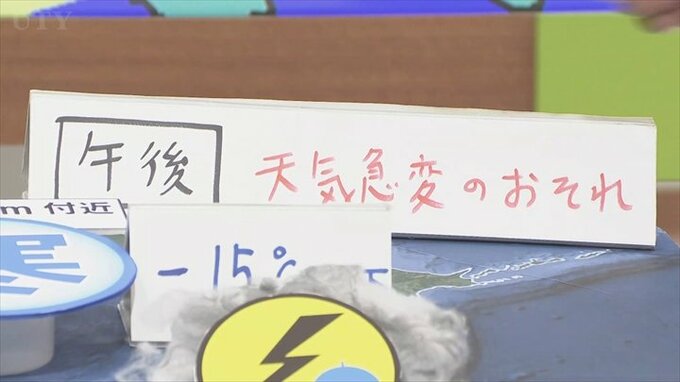 UTY
午後 天気急変のおそれ
m 付近
-15℃